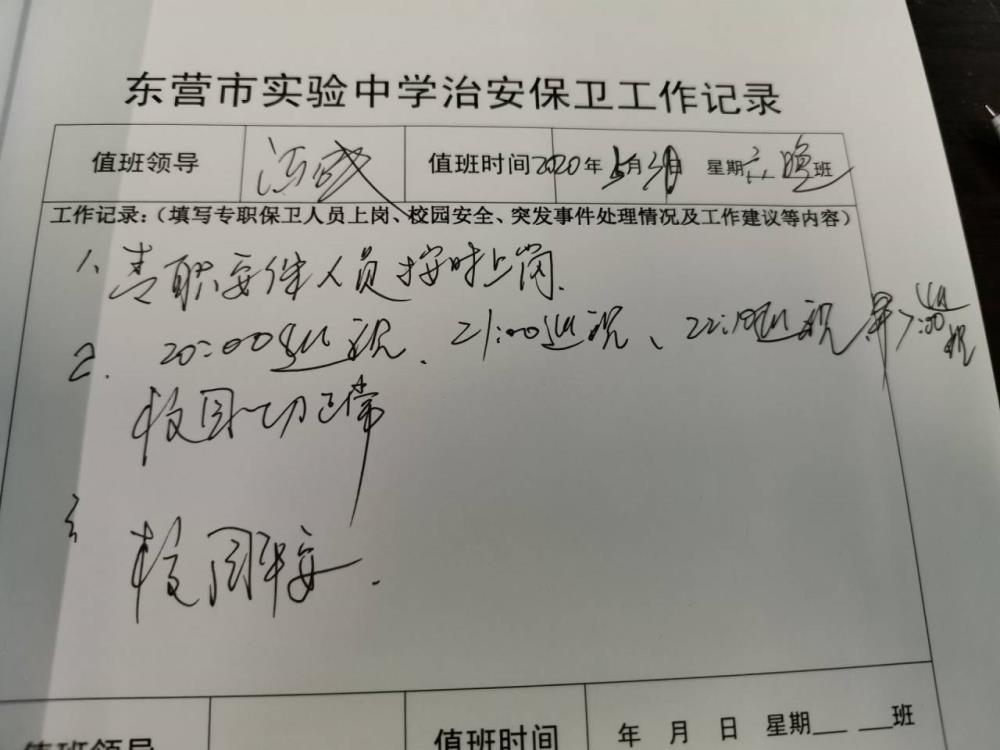 东营市实验中学治安保卫工作记录
值班领导 值班时间2020年5月30日 星期六晚班
工作记录：（填写专职保卫人员上岗、校园安全、突发事件处理情况及工作建议等内容）
1、专职安保人员按时上岗.
2. 20:00巡视、21:00巡视、22:10巡视 早7:00巡视
校园一切正常
3 校园平安.
值班领导 值班时间 年 月 日 星期 班